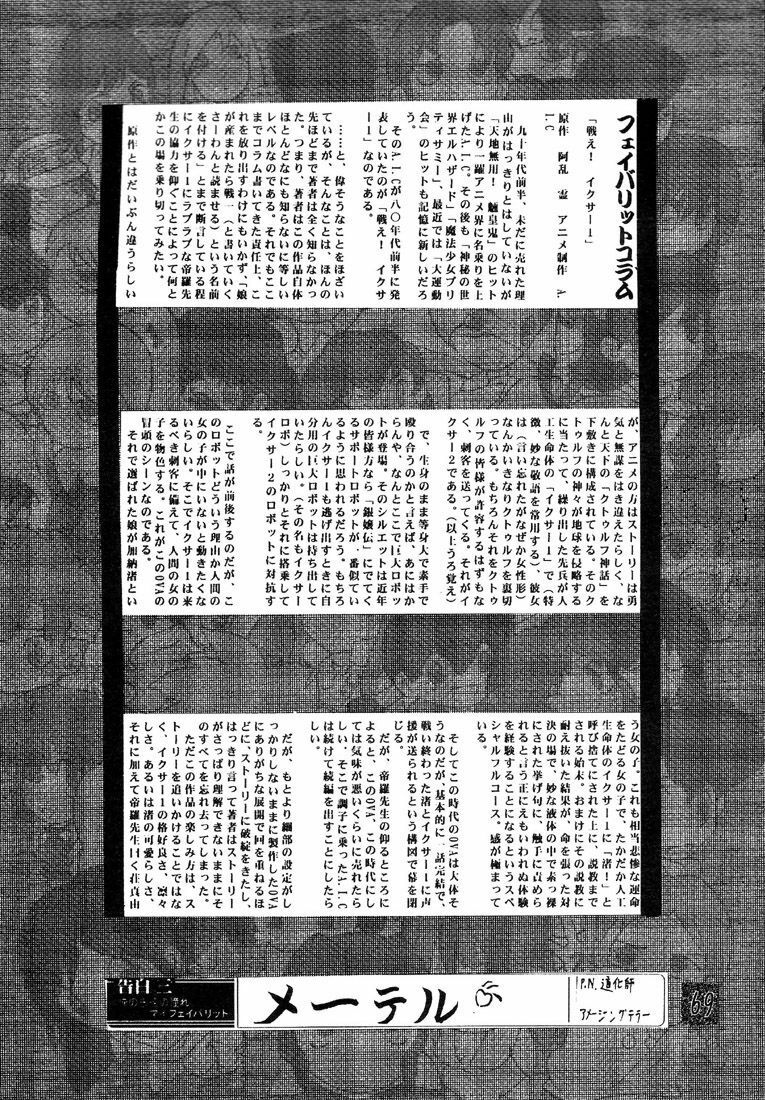 フェイバリットコラム
「戦え！ イクサー１」
原作 阿乱 霊 アニメ制作 A.
I.C
九十年代前半、未だに売れた理
由がはっきりとはしていないが
「天地無用！ 魎皇鬼」のヒット
により一躍アニメ界に名乗りを上
げたA.I.C。その後も「神秘の世
界エルハザード」「魔法少女プリ
ティサミー」、最近では「大運動
会」のヒットも記憶に新しいだろ
う。
そのA.I.Cが八〇年代前半に発
表していたのが「戦え！ イクサ
ー１」なのである。
……と、偉そうなことをほざい
ているが、そんなことは、ほんの
先ほどまで著者は全く知らなかっ
た。つまり、著者はこの作品自体
ほとんどなにも知らないに等しい
レベルなのである。それでもここ
までコラム書いてきた責任上、こ
れを放り出すわけにもいかず、「娘
が産まれたら戦一（と書いていく
さーわんと読ませる）という名前
を付ける」とまで断言している程
にイクサー１にラブラブな帝羅先
生の協力を仰ぐことによって何と
かこの場を乗り切ってみたい。
原作とはだいぶん違うらしい
が、アニメの方はストーリーは勇
気と無謀をはき違えたらしく、な
んと天下の「クトゥルフ神話」を
下敷きに構成されている。そのク
トゥルフの神々が地球を侵略する
に当たって、繰り出した先兵が人
工生命体の「イクサー１」で（特
徴、妙な敬語を常用する）、彼女
は（言い忘れたがなぜか女性形）
なんかいきなりクトゥルフを裏切
っている。もちろんそれをクトゥ
ルフの皆様が許容するはずもな
く、刺客を送ってくる。それがイ
クサー２である。（以上うろ覚え）
で、生身のまま等身大で素手で
殴り合うのかと言えば、あにはか
らんや、なんとここで巨大ロボッ
トが登場。そのシルエットは近年
の皆様方なら「銀嬢伝」にでてく
るサポートロボットが一番似てい
るように思われるだろう。もちろ
んイクサー１も逃げ出すときに自
分用の巨大ロボットは持ち出して
いたらしい。（その名もイクサー
ロボ）しっかりとそれに搭乗して
イクサー２のロボットに対抗す
る。
ここで話が前後するのだが、こ
のロボットどういう理由か人間の
女の子が中にいないと動きたくな
いらしい。そこでイクサー１は来
るべき刺客に備えて、人間の女の
子を物色する。これがこのOVAの
冒頭のシーンなのである。
それで選ばれた娘が加納渚とい
う女の子。これも相当悲惨な運命
をたどる女の子で、たかだか人工
生命体のイクサー１に「渚！」と
呼び捨てにされた上に、説教まで
される始末。おまけにその説教に
耐え抜いた結果が、命を張った対
決の場で、妙な液体の中で素っ裸
にされた挙げ句に、触手に責めら
れると言う正にえもいわれぬ体験
を経験することになるというスペ
シャルフルコース。感が極まって
いる。
そしてこの時代のOVAは大体そ
うなのだが、基本的に一話完結で、
戦い終わった渚とイクサー１に声
援が送られるという構図で幕を閉
じる。
だが、帝羅先生の仰るところに
よると、このOVA、この時代にし
ては気味が悪いくらいに売れたら
しい。そこで調子に乗ったA.I.C
は続けて続編を出すことにしたら
しい。
だが、もとより細部の設定がし
っかりしないままに製作したOVA
にありがちな展開で回を重ねるほ
どに、ストーリーに破綻をきたし、
はっきり言って著者はストーリー
がさっぱり理解できないままにそ
のすべてを忘れ去ってしまった。
ただこの作品の楽しみ方は、ス
トーリーを追いかけることではな
く、イクサー１の格好良さ、凛々
しさ、あるいは渚の可愛らしさ、
それに加えて帝羅先生曰く荘真由
告白三
マイフェイバリット
メーテル
P.N.道化師
アメージングテラー
69